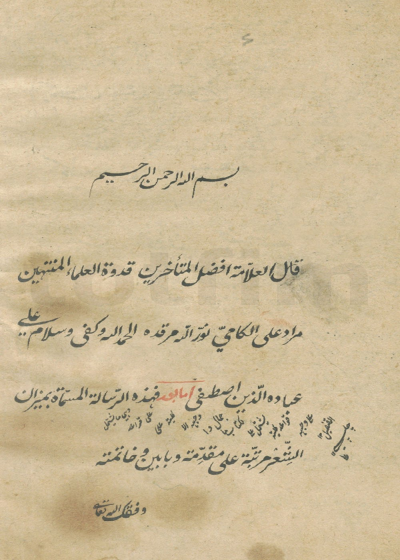 بسم الله الرحمن الرحيم
قال العلامة افضل المتأخرين قدوة العلماء المنتهين
مراد على الكامي نور الله مرقده الحمد لله وكفى وسلام على
عباده الذين اصطفى اما بعد فهذه الرسالة المسماة بميزان
الشعر مرتبة على مقدمة وبابين وخاتمة
وفقك الله تعالى